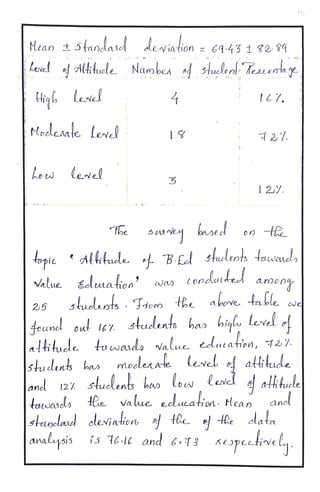 Mean ± Standard deviation = 69.43 ± 82.89
Level of Attitude Number of student Percentage
High Level 4 16%
Moderate Level 18 72%
Low Level 3 12%
The survey based on the
topic ' Attitude of B.Ed students towards
value Education' was conducted among
25 students. From the above table we
found out 16% students has high level of
attitude towards value education, 72%.
students has moderate level of attitude
and 12% students has low level of attitude
towards the value education. Mean and
standard deviation of the of the data
analysis is 76.16 and 6.73 respectively.